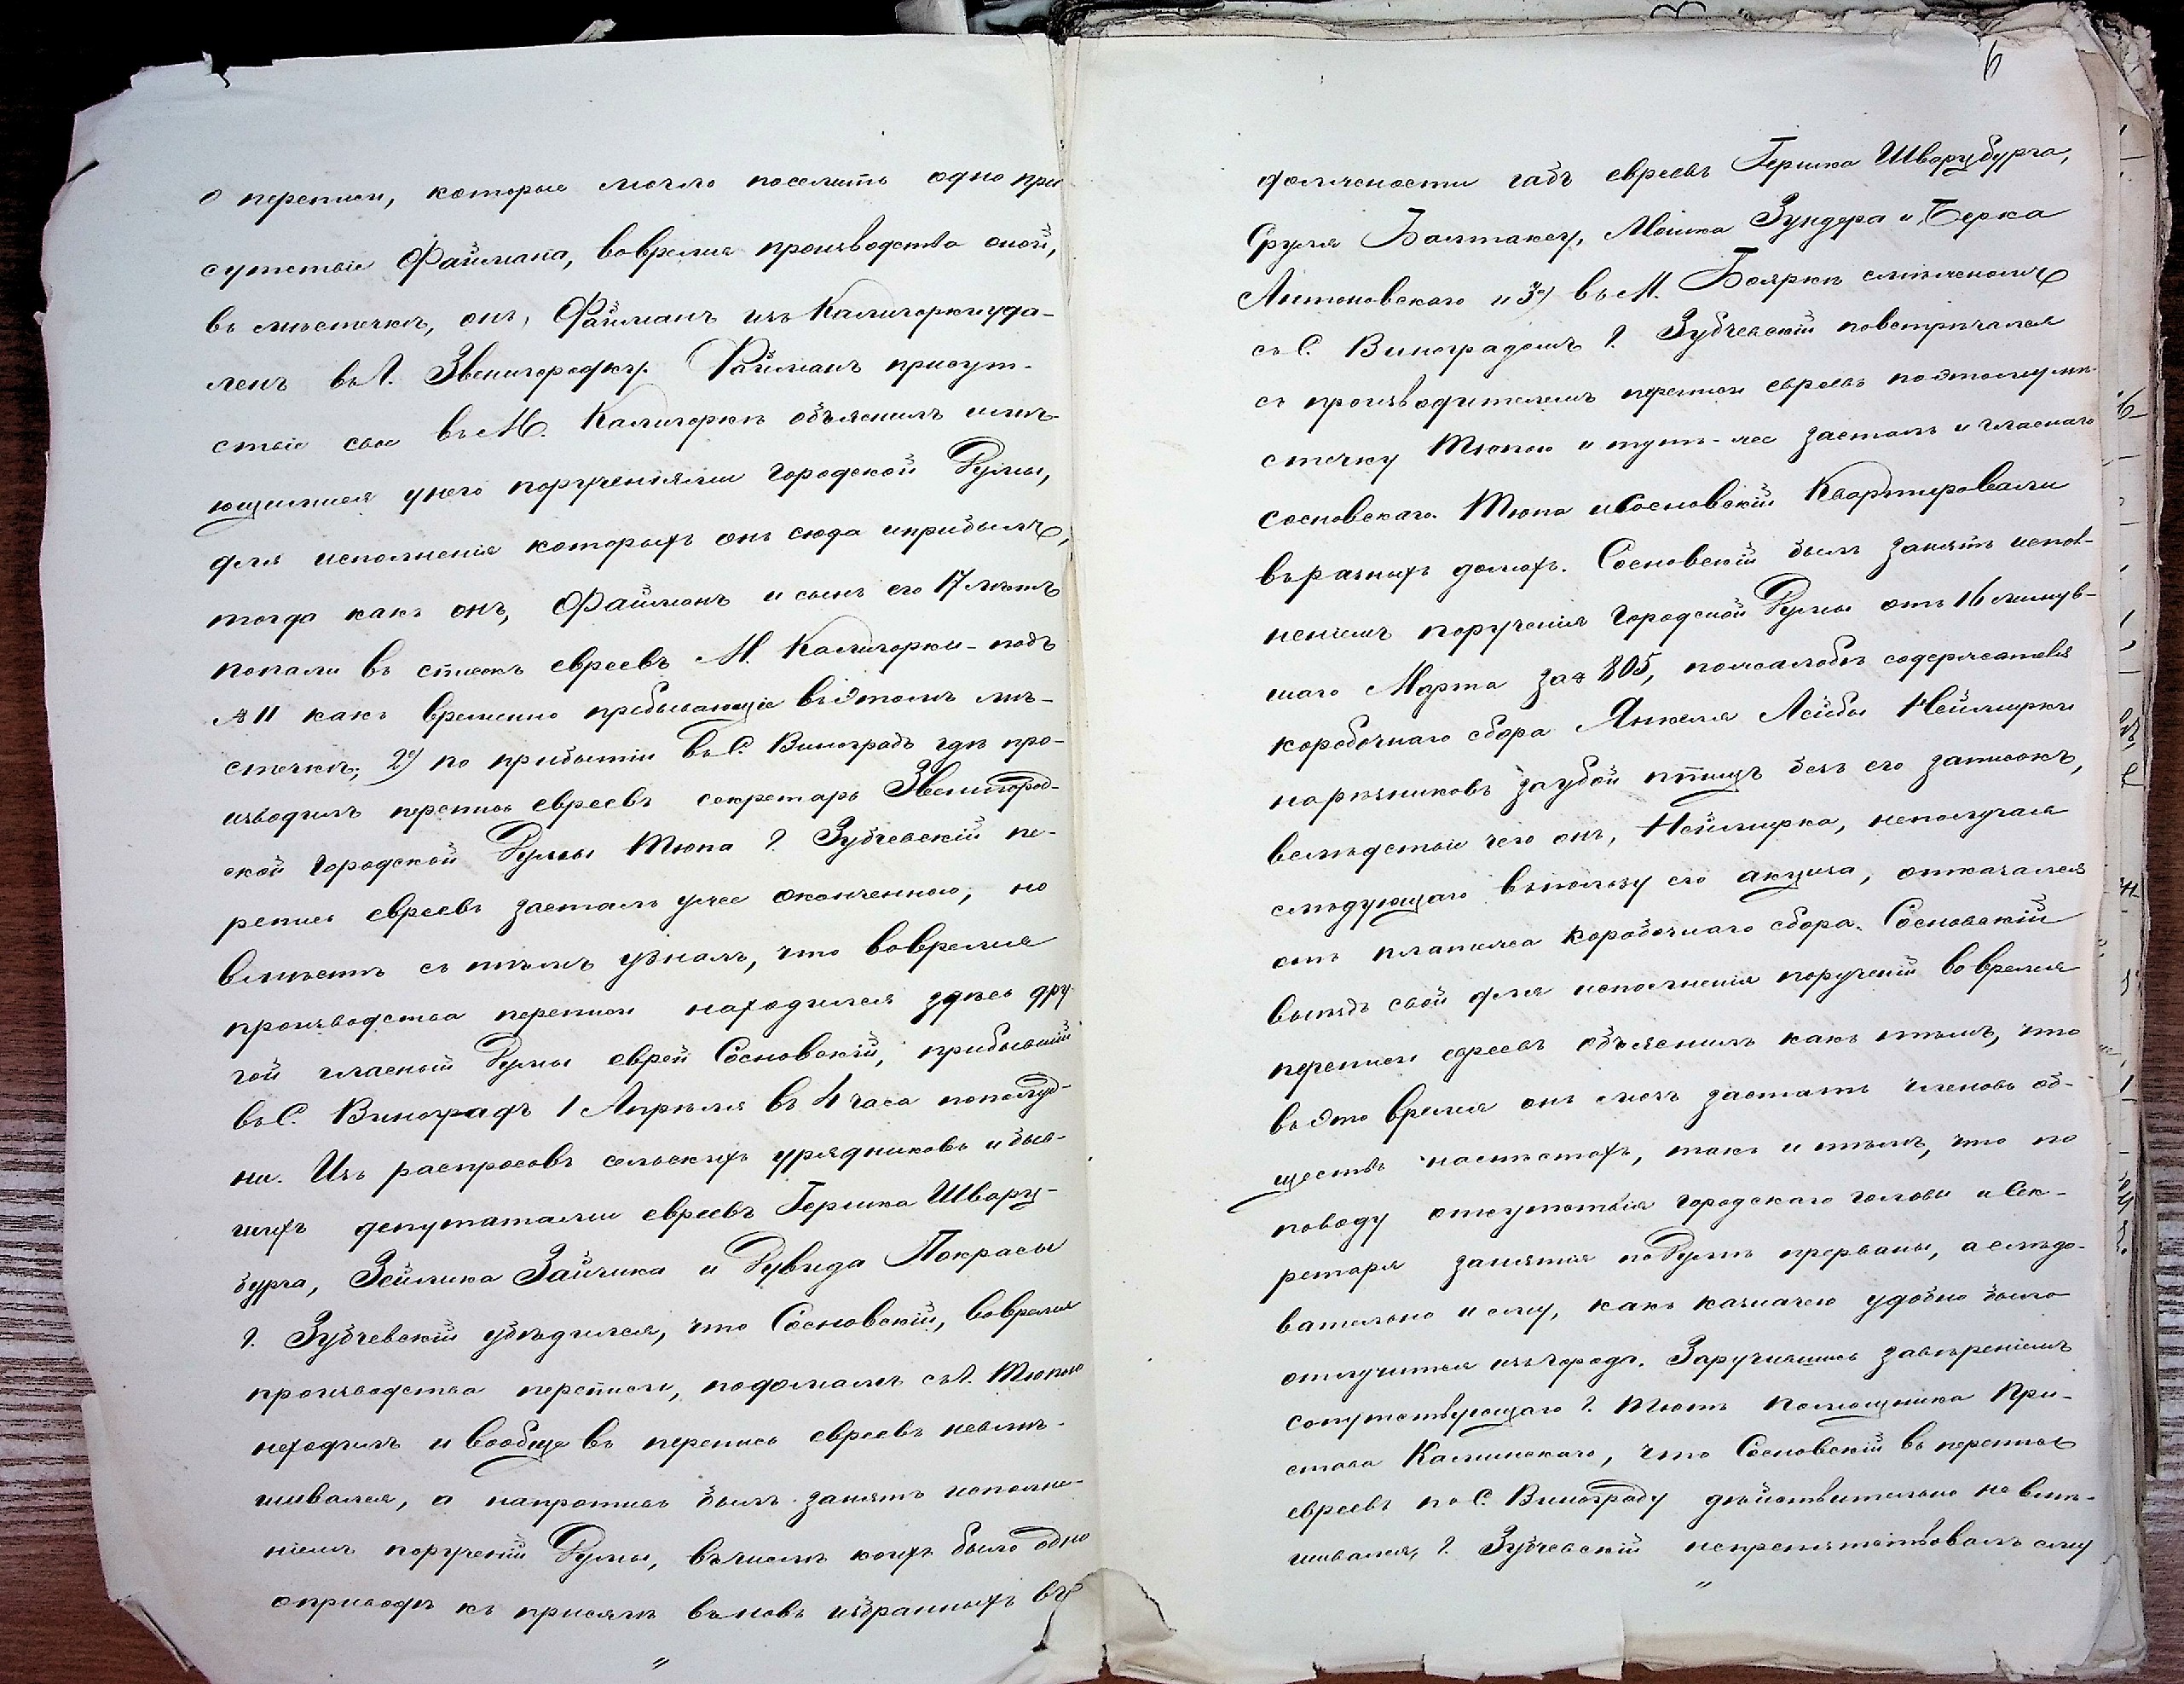 о переписи, которые могло поселить одно при
сутствіе Файмана, вовремя производства оной,
въ местечкѣ, онъ, Файманъ изъ Калигорки уда-
ленъ въ г. Звенигородку. Файманъ присут-
ствіе свое въ М. Калигоркѣ объяснилъ имѣ-
ющимися у него порученіями городской Думы,
для исполненія которыхъ онъ сюда и прибылъ,
тогда какъ онъ, Файманъ и сынъ его 17 лѣтъ
попали въ списокъ евреевъ М. Калигорки - подъ
№ 11 какъ временно пребывающіе въ этомъ мѣ-
стечкѣ; 2) по прибытіи въ С. Виноградъ гдѣ про-
изводилъ перепись евреевъ секретарь Звенигород-
ской городской Думы Тюпа г. Зубчевскій пе-
репись евреевъ засталъ уже оконченною, но
вмѣстѣ съ тѣмъ узналъ, что вовремя
производства переписи находился здѣсь дру-
гой гласный Думы еврей Сосновскій, прибывшій
въ С. Виноградъ 1 Апрѣля въ 4 часа пополуд-
ни. Изъ распросовъ сельскихъ урядниковъ и быв-
шихъ депутатами евреевъ Гершка Шварц-
бурга, Зейлика Зайчика и Дувида Покрасы
г. Зубчевскій убѣдился, что Сосновскій, вовремя
производства переписи, подомамъ съ г. Тюпою
неходилъ и вообще въ перепись евреевъ невмѣ-
шивался, а напротивъ былъ занятъ исполне-
ніемъ порученій Думы, въ числѣ коихъ было одно
о приводѣ къ присягѣ вновь избранныхъ въ
"
6
должности габъ евреевъ Гершка Шварцбурга,
Сруля Балтаксу, Мошка Зундера и Берка
Антоновскаго и 3) въ М. Бояркѣ смѣжномъ
съ С. Виноградомъ г. Зубчевскій повстрѣчался
съ производителемъ переписи евреевъ по этому мѣ-
стечку Тюпою и тутъ-же засталъ и гласнаго
Сосновскаго. Тюпа и Сосновскій квартировали
въ разныхъ домахъ. Сосновскій былъ занятъ испол-
неніемъ порученія Городской Думы отъ 16 минув-
шаго Марта за № 805, по жалобѣ содержателя
коробочнаго сбора Янкеля Лейбы Неймирки
на рѣзниковъ за убой птицъ безъ его записокъ,
вслѣдствіе чего онъ, Неймирка, неполучая
слѣдующаго въ пользу его акциза, отказался
отъ платежа коробочнаго сбора. Сосновскій
выѣздъ свой для исполненія порученій во время
переписи евреевъ объяснилъ какъ тѣмъ, что
въ это время онъ могъ застать членовъ об-
ществъ на мѣстахъ, такъ и тѣмъ, что по
поводу отсутствія городскаго головы и Сек-
ретаря занятія по Думѣ прерваны, а слѣдо-
вательно и ему, какъ казначею удобно было
отлучится изъ города. Заручившись завѣреніемъ
сопутствующаго г. Тюпѣ Помощника При-
става Калинскаго, что Сосновскій въ перепись
евреевъ по С. Винограду дѣйствительно не вмѣ-
шивался, г. Зубчевскій непрепятствовалъ ему
"